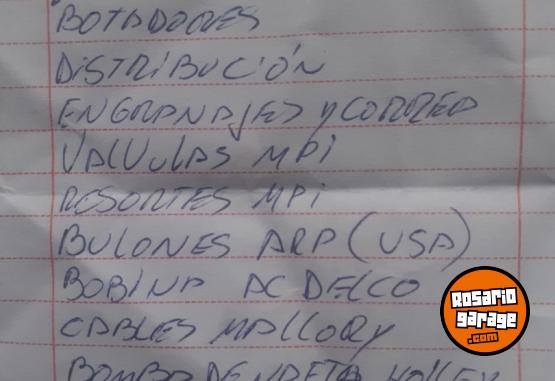 BOTADORES
DISTRIBUCIÓN
ENGRANAJES Y CORREA
VALVULAS MPI
RESORTES MPI
BULONES ARP (USA)
BOBINA AC DELCO
CABLES MALLORY
BOMBA DE NAFTA HOLLEY
Rosario
garage
.com